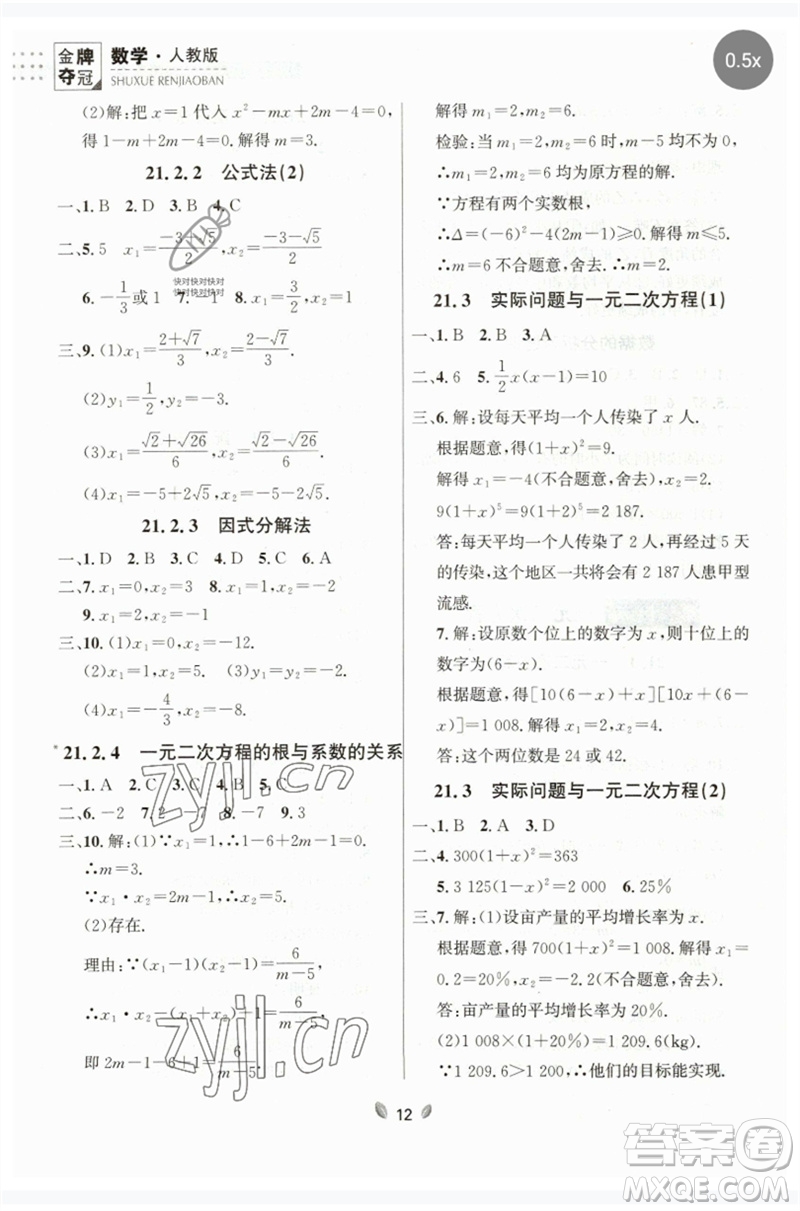 金牌夺冠 数学·人教版
SHUXUE RENJIAOBAN
0.5x
(2)解:把 x=1代入 x²-mx+2m-4=0,
得 1-m+2m-4=0. 解得 m=3.
21.2.2 公式法(2)
一、1. B 2. D 3. B 4. C
二、5. 5 x₁=(-3+√5)/2 x₂=(-3-√5)/2
6. -1/3或1 7. 1 8. x₁=2, x₂=4
快对快对快对
快对快对快对
三、9. (1)x₁=(2+√7)/3, x₂=(2-√7)/3.
(2)y₁=1/2, y₂=-3.
(3)x₁=(√2+√26)/6, x₂=(√2-√26)/6.
(4)x₁=-5+2√5, x₂=-5-2√5.
21.2.3 因式分解法
一、1. D 2. B 3. A 4. B 5. C 6. A
二、7. x₁=0, x₂=3 8. x₁=1, x₂=-3
9. x₁=2, x₂=-1
三、10. (1)x₁=0, x₂=-12.
(2)x₁=2, x₂=5. (3)x₁=x₂=8.
(4)x₁=-4/3, x₂=-8.
*21.2.4 一元二次方程的根与系数的关系
一、1. A 2. C 3. C 4. B 5. D
二、6. -2 7. -2 8. -7 9. 3
三、10. 解:(1)∵x₁=1,∴1-6+2m-1=0.
∴m=3.
∵x₁·x₂=2m-1,∴x₂=5.
(2)存在.
理由:∵(x₁-1)(x₂-1)=6/(m-5),
∴x₁·x₂-(x₁+x₂)+1=6/(m-5),
即 2m-1-6+1=6/(m-5).
解得 m₁=2, m₂=6.
检验:当 m₁=2, m₂=6 时, m-5≠0.
∴m₁=2, m₂=6 均为原方程的解.
∵方程有两个实数根,
∴Δ=(-6)²-4(2m-1)≥0. 解得 m≤5.
∴m=6 不合题意,舍去.∴m=2.
21.3 实际问题与一元二次方程(1)
一、1. B 2. B 3. A
二、4. 6 5. 1/2x(x-1)=10
三、6. 解:设每天平均一个人传染了 x 人.
根据题意,得(1+x)²=9.
解得 x₁=-4(不合题意,舍去), x₂=2.
9(1+x)⁵=9(1+2)⁵=2 187.
答:每天平均一个人传染了 2 人,再经过 5 天
的传染,这个地区一共将会有 2 187 人患甲型
流感.
7. 解:设原数个位上的数字为 x,则十位上的
数字为(6-x).
根据题意,得[10(6-x)+x][10x+(6-
x)]=1 008. 解得 x₁=2, x₂=4.
答:这个两位数是 24 或 42.
21.3 实际问题与一元二次方程(2)
一、1. B 2. A 3. D
二、4. 300(1+x)²=363
5. 3 125(1-x)²=2 000 6. 25%
三、7. 解:(1)设亩产量的平均增长率为 x.
根据题意,得 700(1+x)²=1 008. 解得 x₁=
0.2=20%, x₂=-2.2(不合题意,舍去).
答:亩产量的平均增长率为 20%.
(2)1 008×(1+20%)=1 209.6(kg).
∵1 209.6>1 200,∴他们的目标能实现.
12
zyjl.cn
zyjl.cn
答案圈
MXQE.COM